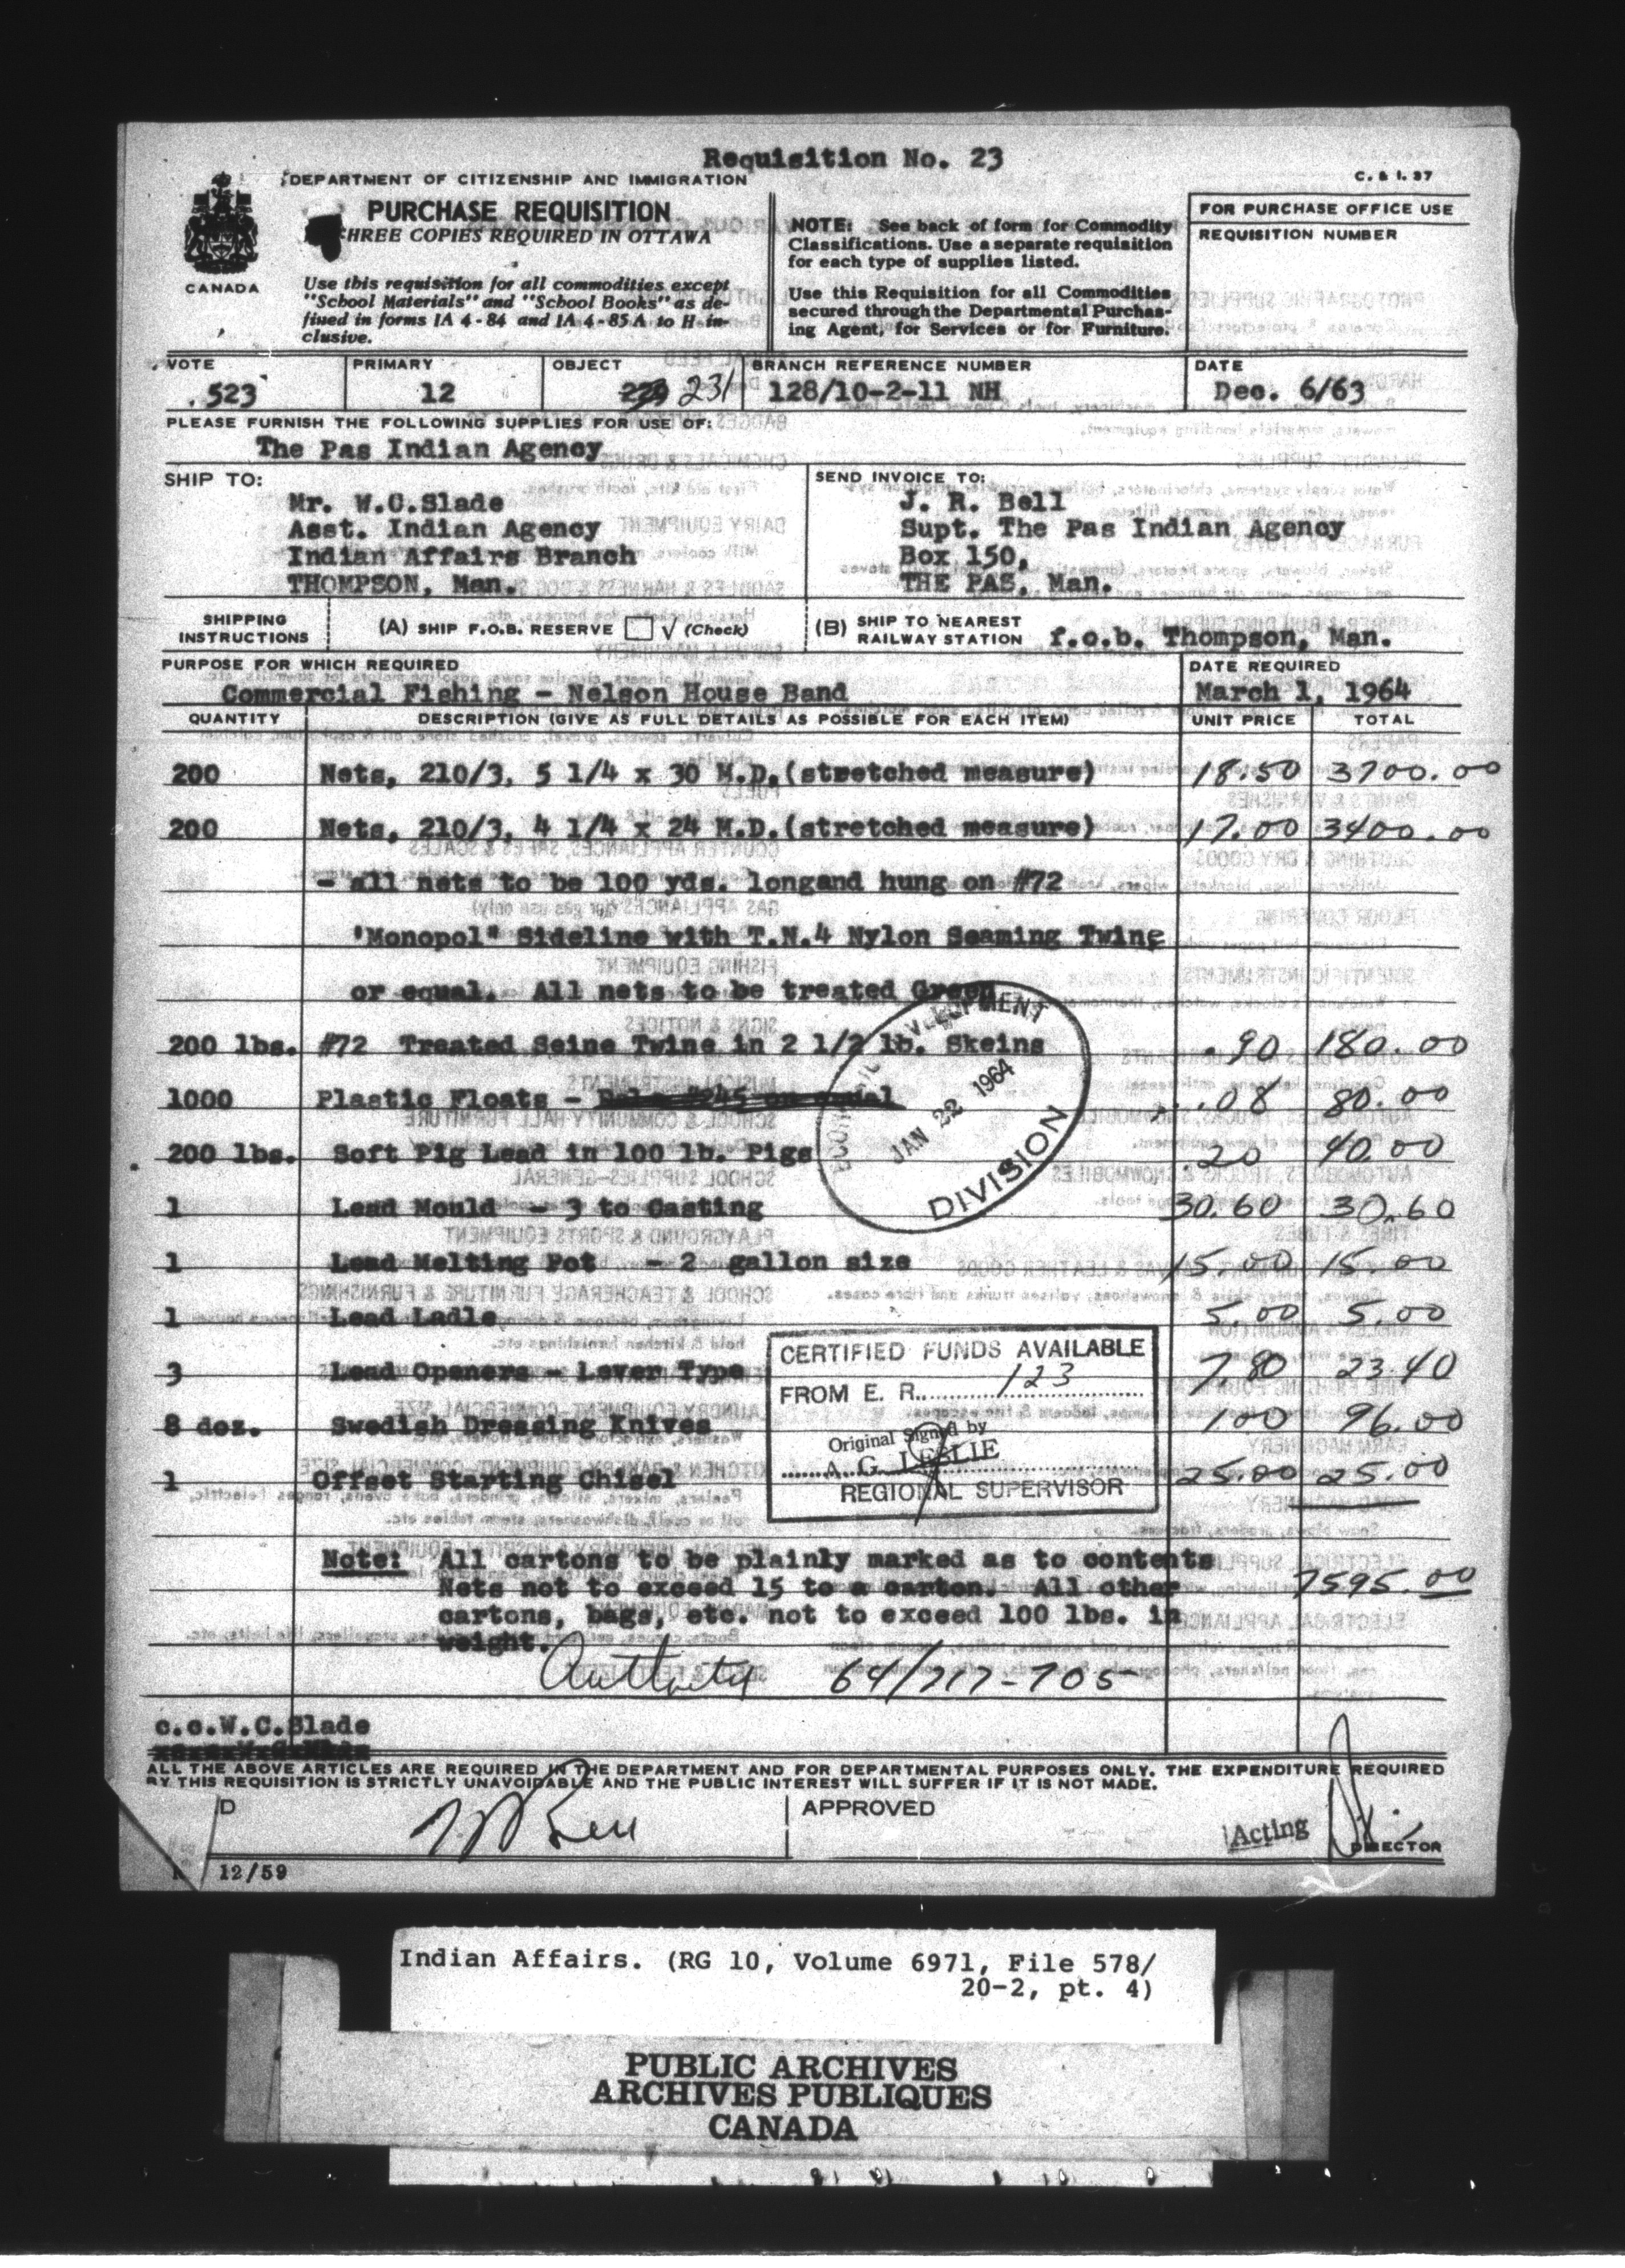 Requisition No. 23
DEPARTMENT OF CITIZENSHIP AND IMMIGRATION
C. & I. 37
CANADA
PURCHASE REQUISITION
HREE COPIES REQUIRED IN OTTAWA
Use this requisition for all commodities except
"School Materials" and "School Books" as de-
fined in forms IA 4-84 and IA 4-85A to H in-
clusive.
NOTE: See back of form for Commodity
Classifications. Use a separate requisition
for each type of supplies listed.
Use this Requisition for all Commodities
secured through the Departmental Purchas-
ing Agent, for Services or for Furniture.
FOR PURCHASE OFFICE USE
REQUISITION NUMBER
VOTE PRIMARY OBJECT BRANCH REFERENCE NUMBER DATE
523 12 231 128/10-2-11 NH Dec. 6/63
PLEASE FURNISH THE FOLLOWING SUPPLIES FOR USE OF:
The Pas Indian Agency
SHIP TO:
Mr. W.C.Slade
Asst. Indian Agency
Indian Affairs Branch
THOMPSON, Man.
SEND INVOICE TO:
J. R. Bell
Supt. The Pas Indian Agency
Box 150,
THE PAS, Man.
SHIPPING INSTRUCTIONS
(A) SHIP F.O.B. RESERVE √ (Check)
(B) SHIP TO NEAREST RAILWAY STATION f.o.b. Thompson, Man.
PURPOSE FOR WHICH REQUIRED
Commercial Fishing - Nelson House Band
DATE REQUIRED
March 1, 1964
QUANTITY DESCRIPTION (GIVE AS FULL DETAILS AS POSSIBLE FOR EACH ITEM) UNIT PRICE TOTAL
200 Nets, 210/3, 5 1/4 x 30 M.D.(stretched measure) 18.50 3700.00
200 Nets, 210/3, 4 1/4 x 24 M.D.(stretched measure) 17.00 3400.00
- all nets to be 100 yds. longand hung on #72
'Monopol" Sideline with T.N.4 Nylon Seaming Twine
or equal. All nets to be treated Green
200 lbs. #72 Treated Seine Twine in 2 1/2 lb. Skeins .90 180.00
1000 Plastic Floats - .08 80.00
200 lbs. Soft Pig Lead in 100 lb. Pigs .20 40.00
1 Lead Mould - 3 to Casting 30.60 30.60
1 Lead Melting Pot - 2 gallon size 15.00 15.00
1 Lead Ladle 5.00 5.00
3 Lead Openers - Lever Type 7.80 23.40
8 doz. Swedish Dressing Knives 1.00 96.00
1 Offset Starting Chisel 25.00 25.00
JAN 22 1964
DIVISION
CERTIFIED FUNDS AVAILABLE
FROM E. R. 123
Original Signed by
A. G. LESLIE
REGIONAL SUPERVISOR
Note: All cartons to be plainly marked as to contents
Nets not to exceed 15 to a carton. All other
cartons, bags, etc. not to exceed 100 lbs. in
weight.
7595.00
Authority 64/717-705
c.c.W.C.Slade
ALL THE ABOVE ARTICLES ARE REQUIRED IN THE DEPARTMENT AND FOR DEPARTMENTAL PURPOSES ONLY. THE EXPENDITURE REQUIRED
BY THIS REQUISITION IS STRICTLY UNAVOIDABLE AND THE PUBLIC INTEREST WILL SUFFER IF IT IS NOT MADE.
D
APPROVED
Acting
DIRECTOR
12/59
Indian Affairs. (RG 10, Volume 6971, File 578/
20-2, pt. 4)
PUBLIC ARCHIVES
ARCHIVES PUBLIQUES
CANADA